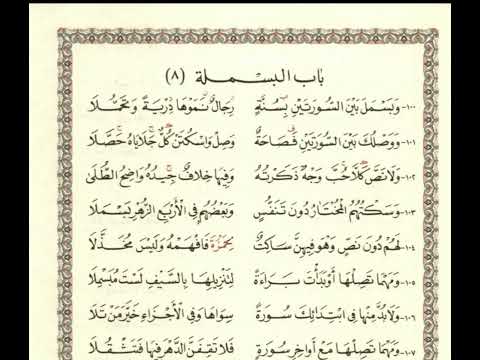 باب البسملة (٨)
١٠٠- وَبَسْمَلَ بَيْنَ السُّورَتَيْنِ بِسُنَّةٍ رِجَالٌ نَمَوْهَا دِرْيَةً وَتَحَمُّلَا
١٠١- وَوَصْلُكَ بَيْنَ السُّورَتَيْنِ فَصَاحَةٌ وَصِلْ وَاسْكُتَنْ كُلٌّ جَلَايَاهُ حَصَّلَا
١٠٢- وَلَا نَصَّ كَلَّا حُبَّ وَجْهٌ ذَكَرْتُهُ وَفِيهَا خِلَافٌ جِيدُهُ وَاضِحُ الطُّلَى
١٠٣- وَسَكْتُهُمُ الْمُخْتَارُ دُونَ تَنَفُّسٍ وَبَعْضُهُمُ فِي الْأَرْبَعِ الزُّهْرِ بَسْمَلَا
١٠٤- لَهُمْ دُونَ نَصٍّ وَهْوَ فِيهِنَّ سَاكِتٌ لِحَمْزَةَ فَافْهَمْهُ وَلَيْسَ مُخَذَّلَا
١٠٥- وَمَهْمَا تَصِلْهَا أَوْ بَدَأْتَ بَرَاءَةً لِتَنْزِيلِهَا بِالسَّيْفِ لَسْتَ مُبَسْمِلَا
١٠٦- وَلَا بُدَّ مِنْهَا فِي ابْتِدَائِكَ سُورَةً سِوَاهَا وَفِي الْأَجْزَاءِ خَيَّرَ مَنْ تَلَا
١٠٧- وَمَهْمَا تَصِلْهَا مَعْ أَوَاخِرِ سُورَةٍ فَلَا تَقِفَنَّ الدَّهْرَ فِيهَا فَتَثْقُلَا